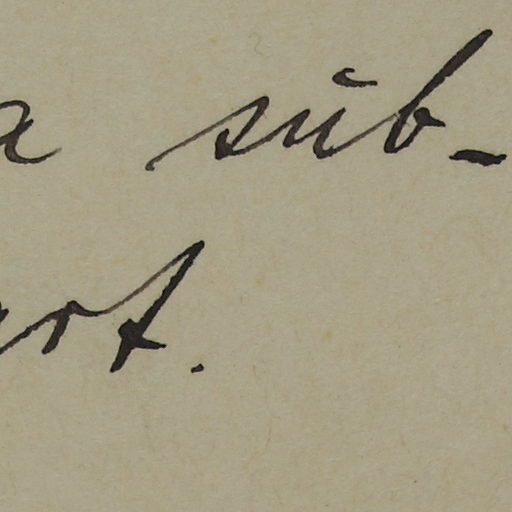 a sub-
art.